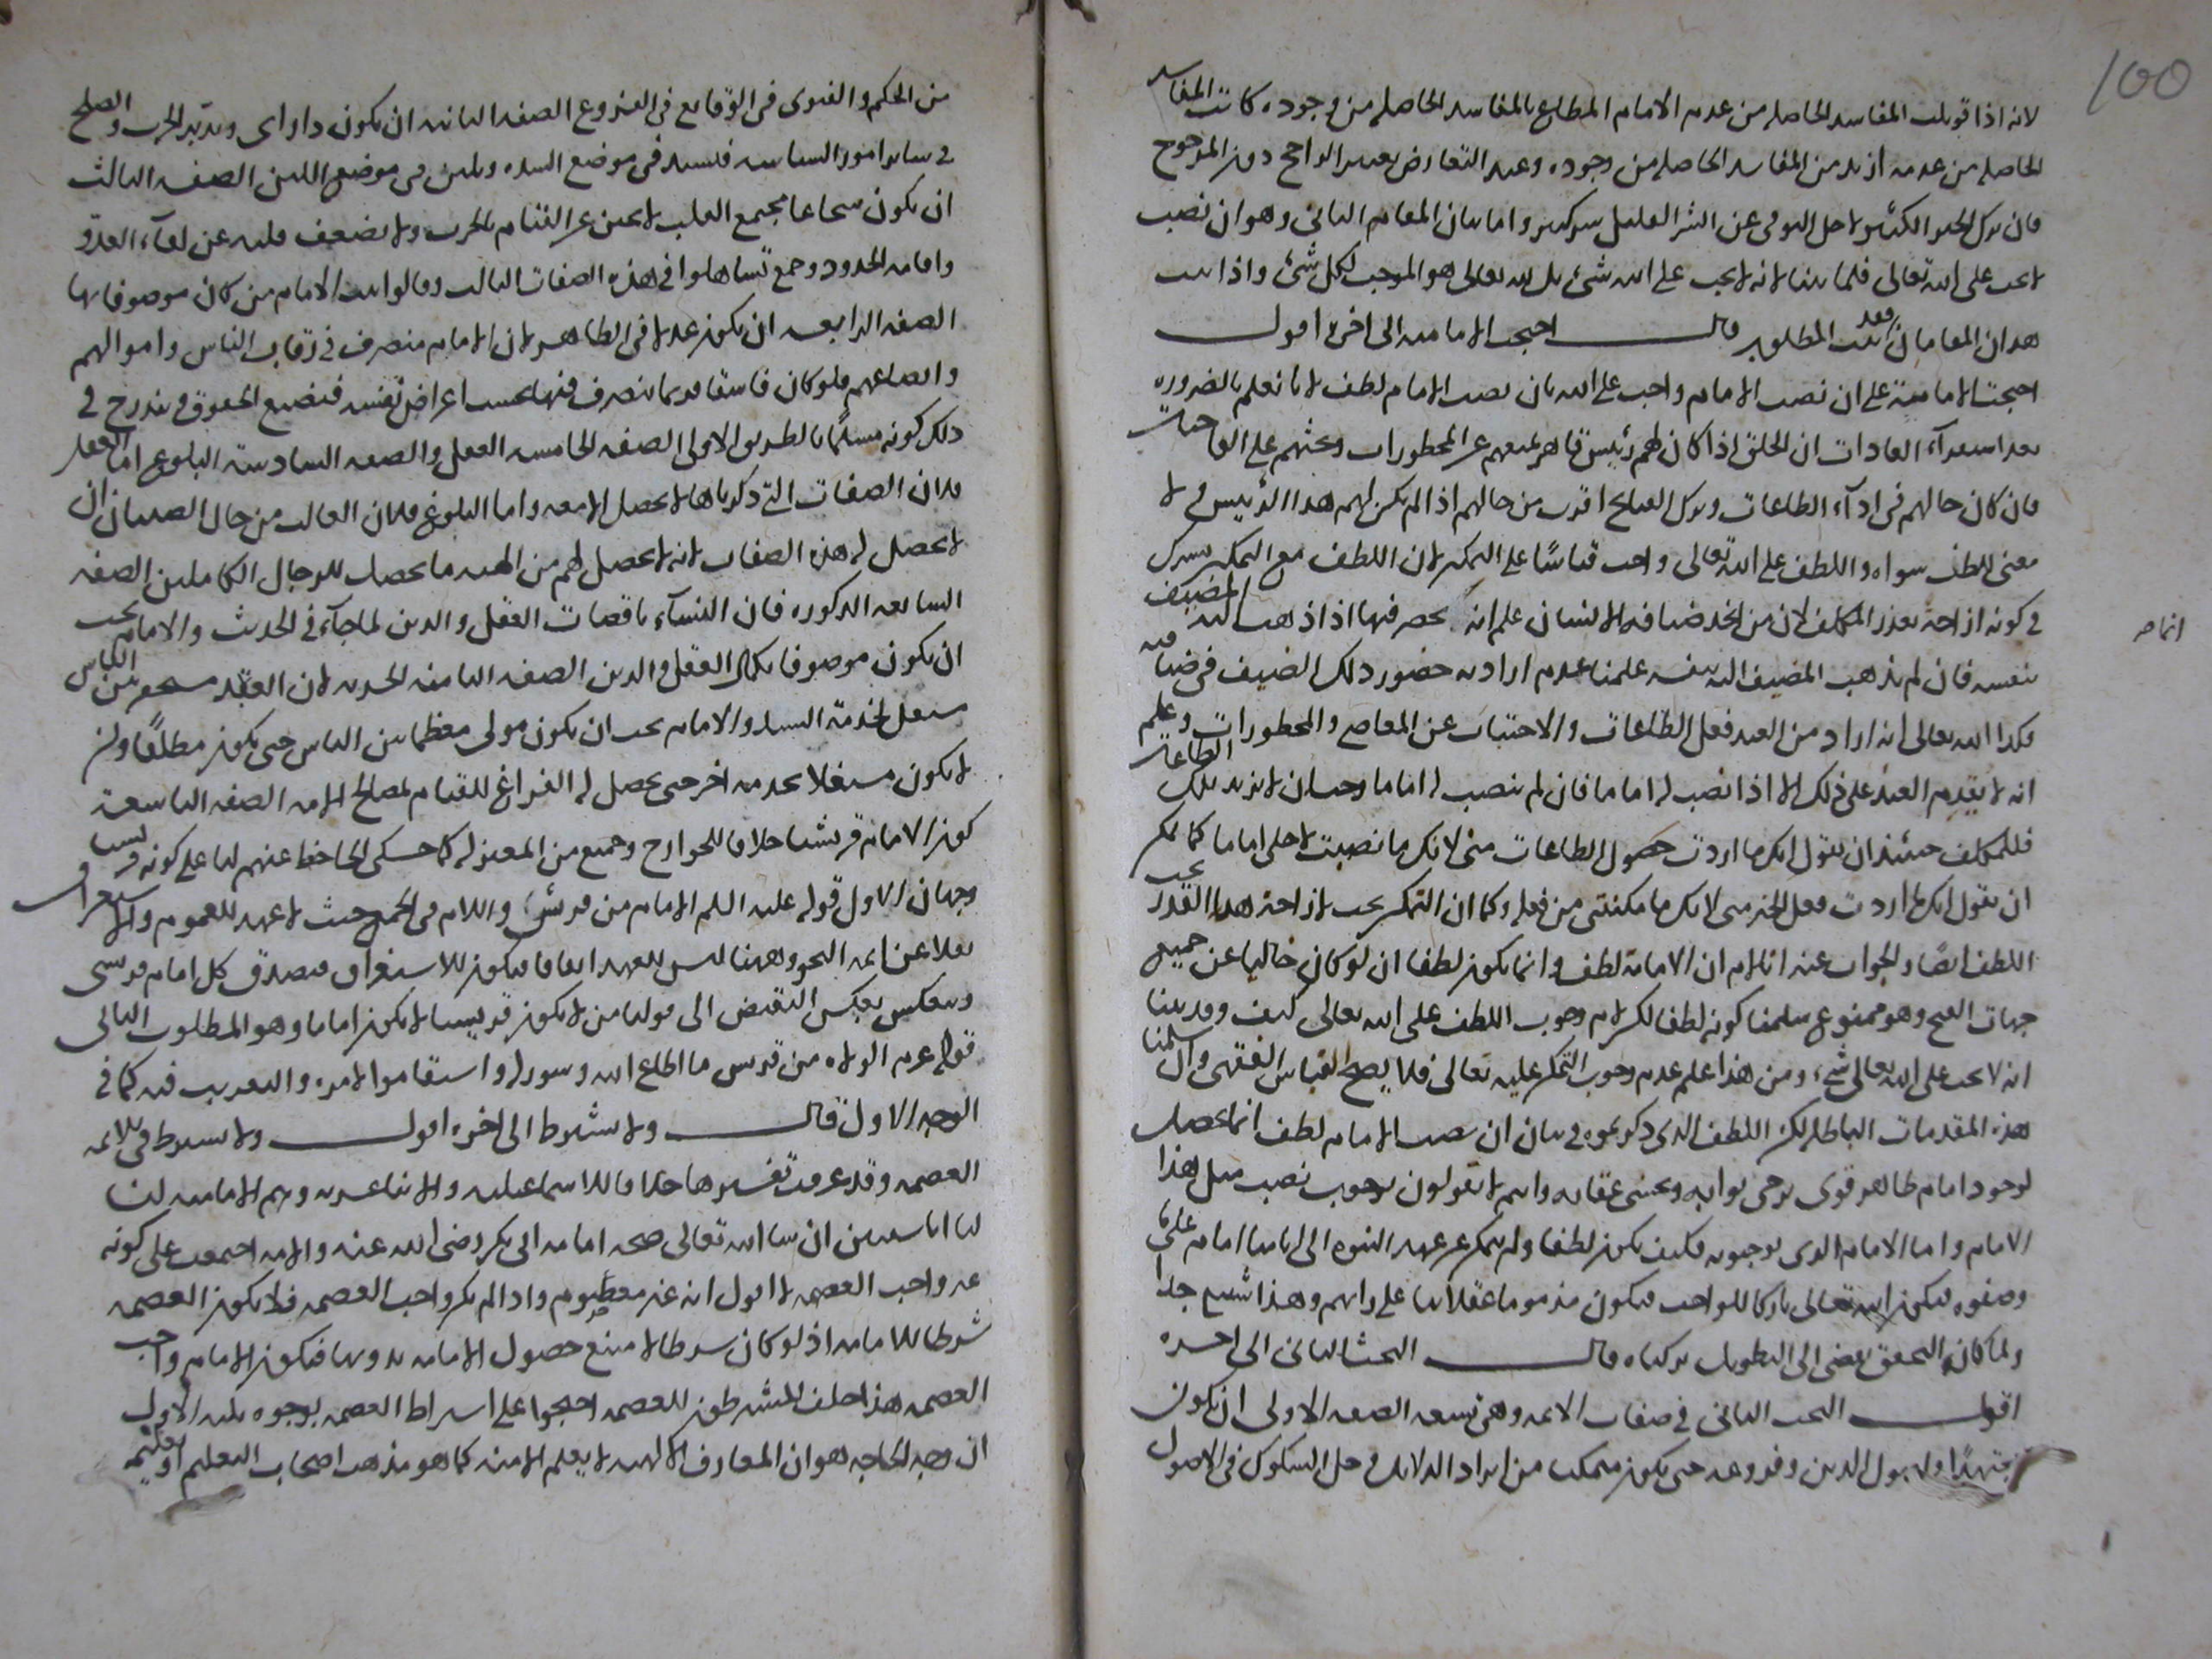 100
لانه اذا قوبلت المفاسد الحاصله من عدم الامام المطاع بالمفاسد الحاصله من وجوده كانت المفاسد
الحاصله من عدمه ازيد من المفاسد الحاصله من وجوده وعند التعارض يعتبر الراجح دون المرجوح
فان ترك الخير الكثير لاجل التوقى عن الشر القليل شر كثير واما بيان المقام الثانى وهو ان نصب
لا يجب على الله تعالى فلما بينا انه لا يجب على الله شئ بل الله تعالى هو الموجب لكل شئ واذا ثبت
هذان المقامان فقد ثبت المطلوب قال احتجت الامامية الى اخره اقول
احتجت الامامية على ان نصب الامام واجب على الله بان نصب الامام لطف لانا نعلم بالضرورة
بعد استقراء العادات ان الخلق اذا كان لهم رئيس قاهر يمنعهم عن المحظورات ويحثهم على الواجبات
فان كان حالهم فى اداء الطاعات وترك القبايح اقرب من حالهم اذا لم يكن لهم هذا الرئيس ولا
معنى للطف سواه واللطف على الله تعالى واجب قياسًا على التمكين لان اللطف مع التمكين يشترك
فى كونه ازاحة بعذر المكلف لان من اتخذ ضيافة لانسان علم انه يحضر فيها اذا ذهب اليه المضيف
انما
بنفسه فان لم يذهب المضيف اليه بنفسه علمنا عدم ارادته حضور ذلك الضيف فى ضيافته
فكذا الله تعالى انه اراد من العبد فعل الطاعات والاجتناب عن المعاصى والمحظورات وعلم
انه لا يقدم العبد على ذلك الا اذا نصب له اماما فان لم ينصب له اماما وجب ان لا يريد تلك الطاعات
فللمكلف حينئذ ان يقول انك ما اردت حصول الطاعات منى لانك ما نصبت لاجلى اماما كما يمكن
ان يقول انك ما اردت فعل الخير منى لانك ما مكنتنى من فعله وكما ان التمكين يجب لازاحة هذا القدر يجب
اللطف ايضا والجواب عنه انا لا نسلم ان الامامة لطف وانما يكون لطفا ان لو كان خاليا عن جميع
جهات القبح وهو ممنوع سلمنا كونه لطفا لكن لا نسلم وجوب اللطف على الله تعالى كيف وقد بينا
انه لا يجب على الله تعالى شئ ومن هذا علم عدم وجوب التمكين عليه تعالى فلا يصح القياس الفقهى وان سلمنا
هذه المقدمات الباطلة لكن اللطف الذى ذكرتموه فى بيان ان نصب الامام لطف انما يحصل
لوجود امام ظاهر قوى يرجى ثوابه ويخشى عقابه وانتم لا تقولون بوجوب نصب مثل هذا
الامام واما الامام الذى توجبونه فكيف يكون لطفا ولم يتمكن من عهد النبوة الى ايامنا امام على ما
وصفوه فيكون الله تعالى تاركا للواجب فيكون مذموما عقلا على رايهم وهذا شنيع جدا
ولما كان التحقيق يفضى الى التطويل تركناه قال البحث الثانى الى اخره
اقول البحث الثانى فى صفات الائمة وهى تسعة الصفة الاولى ان يكون
مجتهدًا فى اصول الدين وفروعه حتى يكون متمكنا من ايراد الدلائل وحل الشكوك فى الاصول
من الحكم والفتوى فى الوقايع فى الفروع الصفة الثانية ان يكون ذا راى وتدبير الحرب والصلح
فى سائر امور السياسة فيشتد فى موضع الشدة ويلين فى موضع اللين الصفة الثالث
ان يكون شجاعا مجتمع القلب لا يجبن عن القيام بالحرب ولا يضعف قلبه عن لقاء العدو
واقامة الحدود وجمع تساهلوا فى هذه الصفات الثالث وقالوا الامام من كان موصوفا بها
الصفة الرابعة ان يكون عدلا فى الظاهر لان الامام متصرف فى رقاب الناس واموالهم
وابضاعهم فلو كان فاسقا فربما يتصرف فيها بحسب اعراض نفسه فتضيع الحقوق ويندرج فى
ذلك كونه مسلمًا بالطريق الاولى الصفة الخامسة العقل والصفة السادسة البلوغ اما العقل
فلان الصفات التى ذكرناها لا تحصل الا معه واما البلوغ فلان الغالب من حال الصبيان ان
لا يحصل له هذه الصفات لانه لا يحصل لهم من الهيبة ما يحصل للرجال الكاملين الصفة
السابعة الذكورة فان النساء ناقصات العقل والدين لما جاء فى الحديث والامام يجب
ان يكون موصوفا بكمال العقل والدين الصفة الثامنة الحرية لان العبد مستحقر بين الناس
مشتغل لخدمة السيد والامام يجب ان يكون مولى معظما بين الناس حتى يكون مطاعًا وان
لا يكون مشتغلا بخدمة اخر حتى يحصل له الفراغ للقيام لمصالح الامة الصفة التاسعة
كون الامام قرشيا خلافا للخوارج وجمع من المعتزلة كما حكى الجاحظ عنهم لنا على كونه قرشيا
وجهان الاول قوله عليه السلم الائمة من قريش واللام فى الجمع حيث لا عهد للعموم والاستغراق
نقلا عن ائمة النحو وههنا ليس للعهد اتفاقا فيكون للاستغراق فيصدق كل امام قرشى
وينعكس بعكس النقيض الى قولنا من لا يكون قرشيا لا يكون اماما وهو المطلوب الثانى
قوله عم الولاة من قريش ما اطاع الله ورسوله واستقاموا لامره والتقريب فيه كما فى
الوجه الاول قال ولا تشترط الى اخره اقول ولا يشترط فى الائمة
العصمة وقد عرفت تفسيرها خلافا للاسماعيلية والاثنا عشرية وهم الامامية لنا
لنا انا سنبين ان شا الله تعالى صحة امامة ابى بكر رضى الله عنه والامة اجمعت على كونه
غير واجب العصمة لا اقول انه غير معصوم واذا لم يكن واجب العصمة فلا يكون العصمة
شرطا للامامة اذ لو كان شرطا لامتنع حصول الامامة بدونها فيكون الامام واجب
العصمة هذا خلف المشترطون للعصمة احتجوا على اشتراط العصمة بوجوه ثلاثة الاول
ان وجه الحاجة هو ان المعارف الالهية لا يعلم الا منه كما هو مذهب اصحاب التعليم او تعليمه